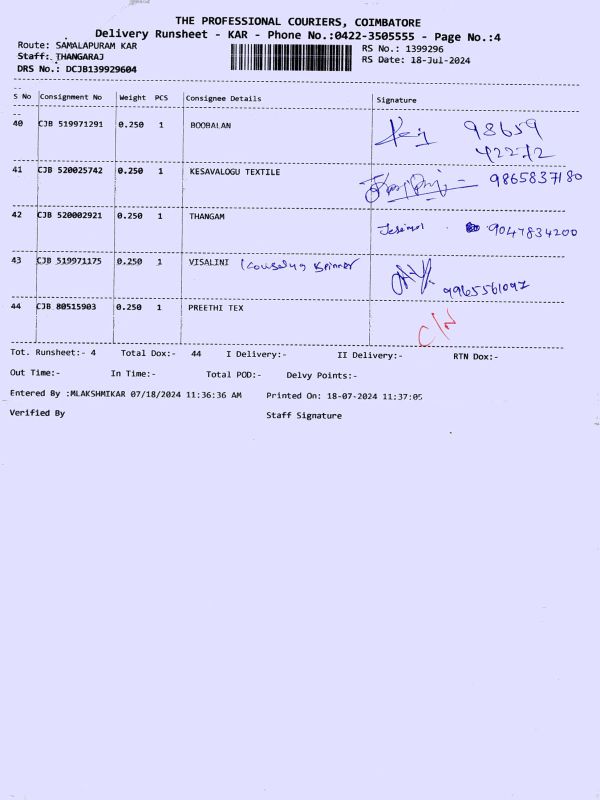 THE PROFESSIONAL COURIERS, COIMBATORE
Delivery Runsheet - KAR - Phone No.:0422-3505555 - Page No.:4
Route: SAMALAPURAM KAR
RS No.: 1399296
Staff: THANGARAJ
RS Date: 18-Jul-2024
DRS No.: DCJB139929604
S No Consignment No Weight PCS Consignee Details Signature
40 CJB 519971291 0.250 1 BOOBALAN 98659
42272
41 CJB 520025742 0.250 1 KESAVALOGU TEXTILE 9865837180
42 CJB 520002921 0.250 1 THANGAM 9047834200
43 CJB 519971175 0.250 1 VISALINI 9965561097
44 CJB 80515903 0.250 1 PREETHI TEX C/N
Tot. Runsheet:- 4 Total Dox:- 44 I Delivery:- II Delivery:- RTN Dox:-
Out Time:- In Time:- Total POD:- Delvy Points:-
Entered By :MLAKSHMIKAR 07/18/2024 11:36:36 AM Printed On: 18-07-2024 11:37:05
Verified By Staff Signature